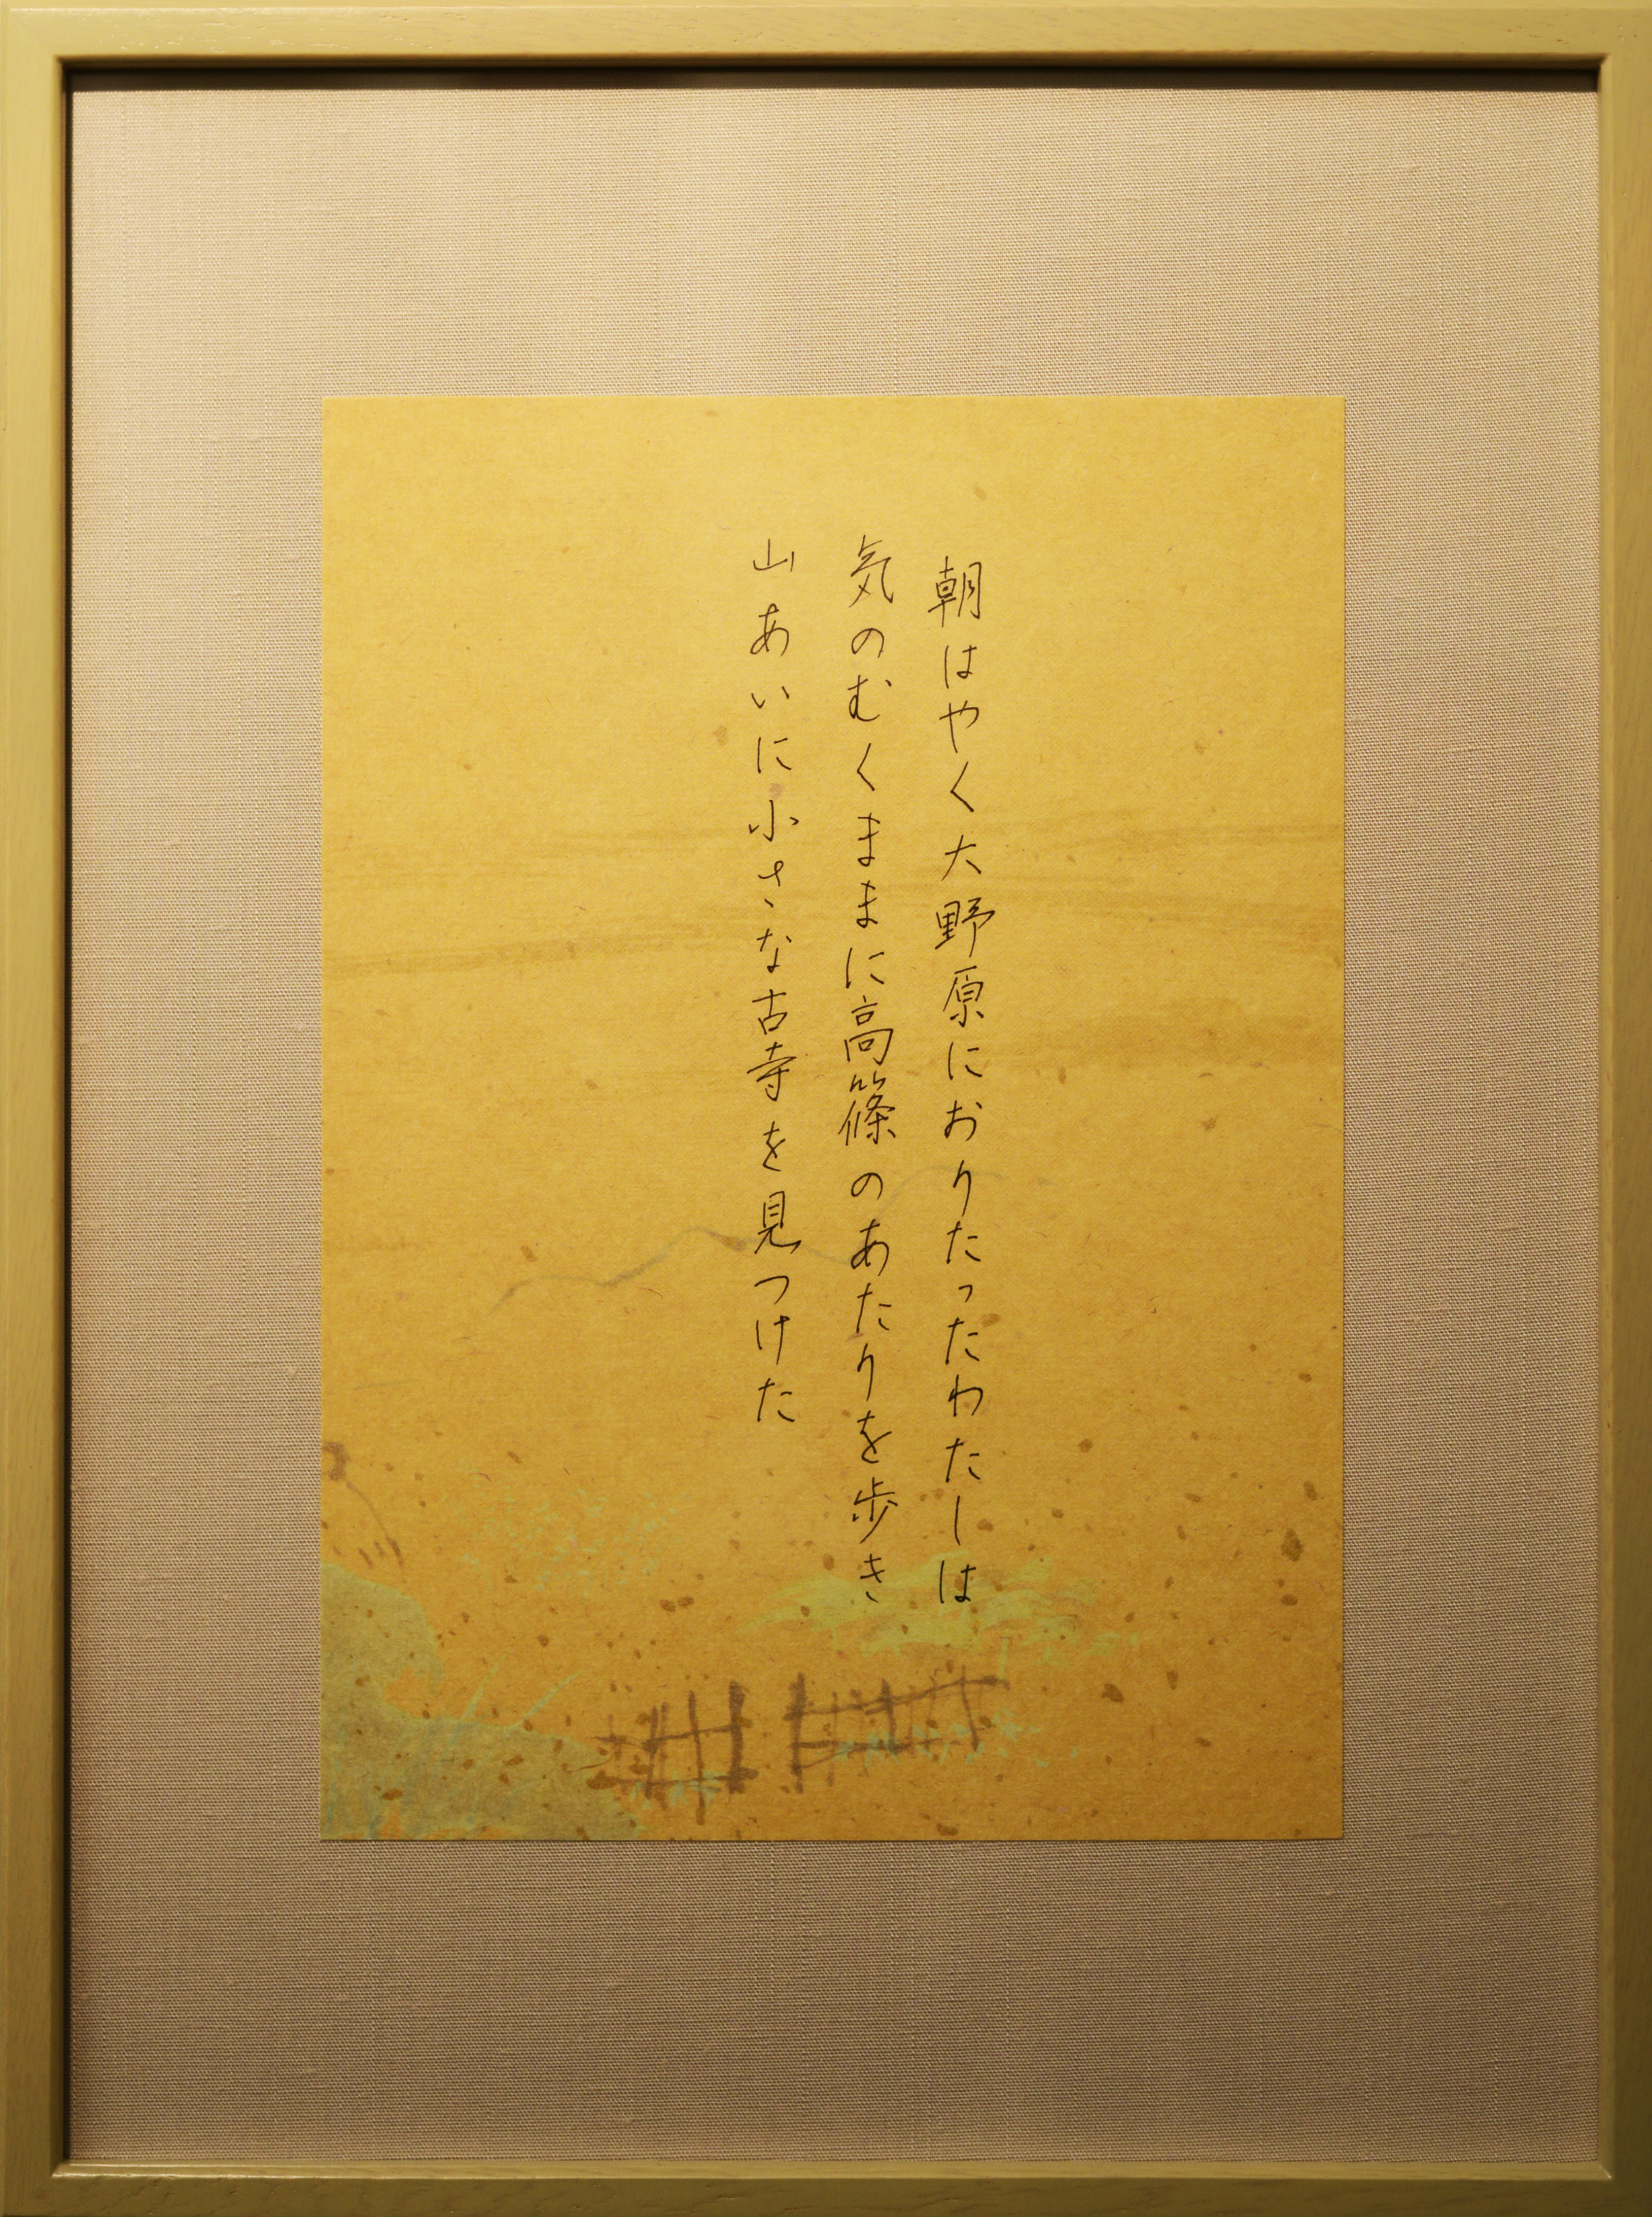 朝はやく大野原におりたったわたしは
気のむくままに高篠のあたりを歩き
山あいに小さな古寺を見つけた